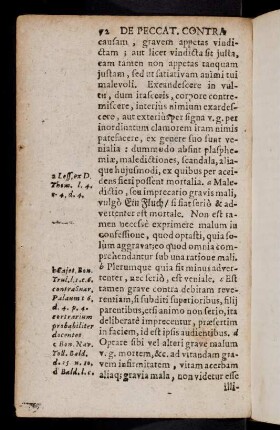 92 DE PECCAT. CONTRA
causam, gravem appetas vindi-
ctam; aut licet vindicta sit justa,
eam tamen non appetas tanquam
justam, sed ut satiativam animi tui
malevoli. Exeandescere in vul-
tu, dum irasceris, corpore contre-
miscere, interiùs nimium exardes-
cere, aut exteriùs per signa v. g. per
inordinatum clamorem iram nimis
patefacere, ex genere suo sunt ve-
nialia: dummodo absint plasphe-
miæ, maledictiones, scandala, aliaq-
que hujusmodi, ex quibus per acci-
dens fieri possent mortalia. a Male-
dictio, seu imprecatio gravis mali,
vulgò Ein Fluch/ si fiat seriò & ad-
vertenter est mortale. Non est ta-
men necesse exprimere malum in
confessione, quod optasti, quia so-
lùm aggravat eo quod omnia com-
prehendantur sub una ratione mali.
b Plerumque quia fit minùs adver-
tenter, aut seriò, est veniale. c Est
tamen grave contra debitam reve-
rentiam, si subditi superioribus, filij
parentibus, etsi animo non serio, ita
deliberatè imprecentur, præsertim
in faciem, id est ipsis audientibus. d
Optare sibi vel alteri grave malum
v. g. mortem, &c. ad vitandam gra-
vem infirmitatem, vitam acerbam
aliaq; gravia mala, non videtur esse
illi-
a Less. ex D.
Thom. l. 4.
c. 4. d. 4.
b Cajet. Bon.
contra Nar.
Palaum t 6.
d. 4. p. 4.
contrarium
probabiliter
docentes
c Bon. Nav.
Toll. Bald.
d. 15 n. 10.
d Bald. l. c.